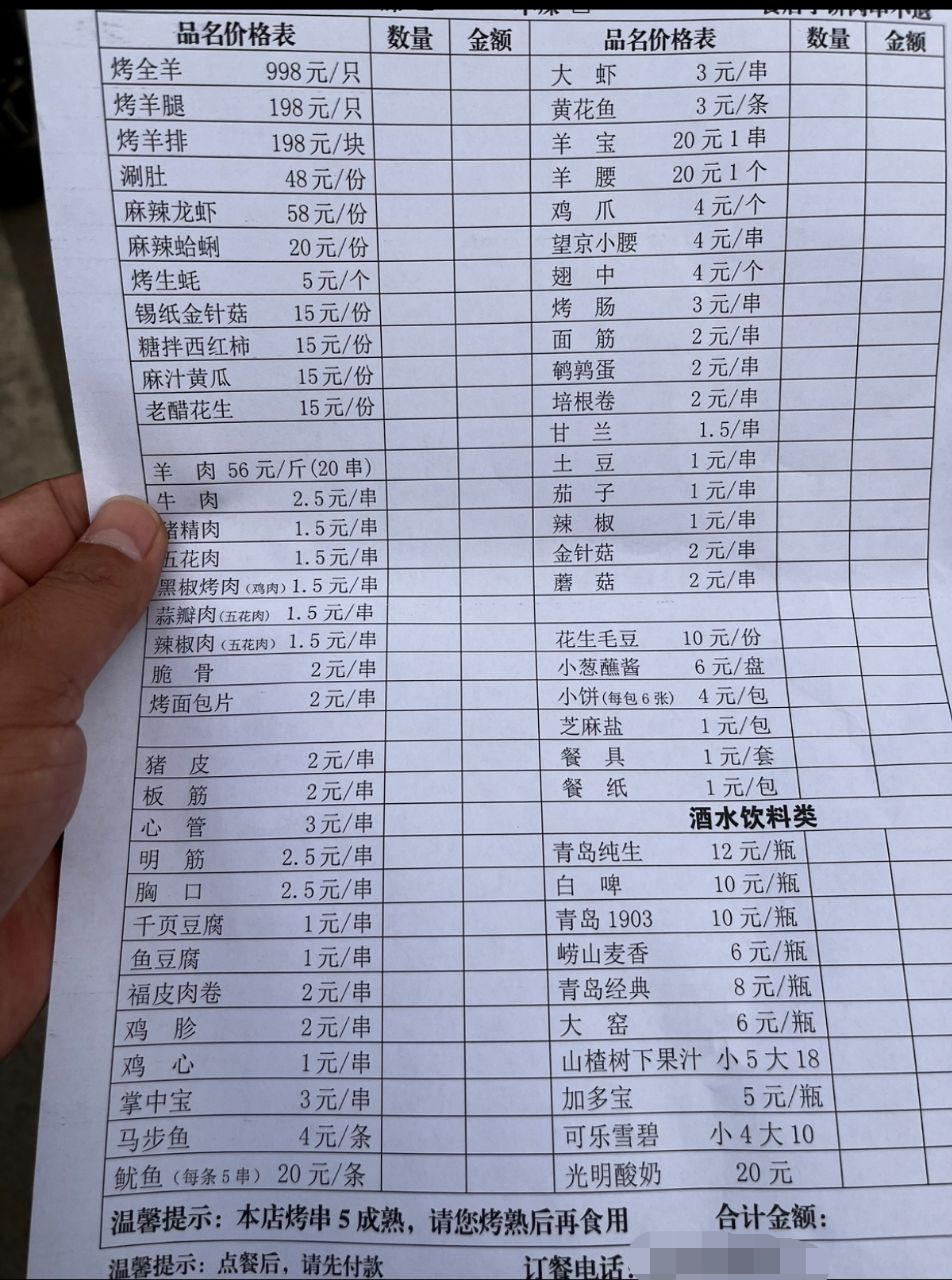 品名价格表 数量 金额
烤全羊 998元/只
烤羊腿 198元/只
烤羊排 198元/块
涮肚 48元/份
麻辣龙虾 58元/份
麻辣蛤蜊 20元/份
烤生蚝 5元/个
锡纸金针菇 15元/份
糖拌西红柿 15元/份
麻汁黄瓜 15元/份
老醋花生 15元/份
羊 肉 56元/斤(20串)
牛 肉 2.5元/串
猪精肉 1.5元/串
五花肉 1.5元/串
黑椒烤肉(鸡肉) 1.5元/串
蒜瓣肉(五花肉) 1.5元/串
辣椒肉(五花肉) 1.5元/串
脆 骨 2元/串
烤面包片 2元/串
猪 皮 2元/串
板 筋 2元/串
心 管 3元/串
明 筋 2.5元/串
胸 口 2.5元/串
千页豆腐 1元/串
鱼豆腐 1元/串
福皮肉卷 2元/串
鸡 胗 2元/串
鸡 心 1元/串
掌中宝 3元/串
马步鱼 4元/条
鱿鱼(每条5串) 20元/条
品名价格表 数量 金额
大 虾 3元/串
黄花鱼 3元/条
羊 宝 20元1串
羊 腰 20元1个
鸡 爪 4元/个
望京小腰 4元/串
翅 中 4元/个
烤 肠 3元/串
面 筋 2元/串
鹌鹑蛋 2元/串
培根卷 2元/串
甘 兰 1.5/串
土 豆 1元/串
茄 子 1元/串
辣 椒 1元/串
金针菇 2元/串
蘑 菇 2元/串
花生毛豆 10元/份
小葱蘸酱 6元/盘
小饼(每包6张) 4元/包
芝麻盐 1元/包
餐 具 1元/套
餐 纸 1元/包
酒水饮料类
青岛纯生 12元/瓶
白 啤 10元/瓶
青岛1903 10元/瓶
崂山麦香 6元/瓶
青岛经典 8元/瓶
大 窑 6元/瓶
山楂树下果汁 小5大18
加多宝 5元/瓶
可乐雪碧 小4大10
光明酸奶 20元
温馨提示：本店烤串5成熟，请您烤熟后再食用 合计金额：
温馨提示：点餐后，请先付款 订餐电话：